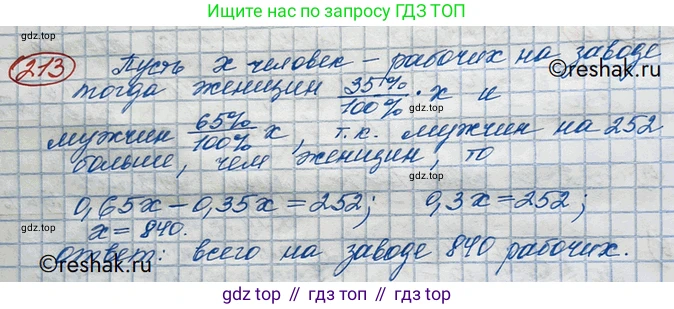 Ищите нас по запросу ГДЗ ТОП
213 Пусть x человек – рабочих на заводе
gdz.top gdz.top gdz.top
©reshak.ru
тогда женщин 35%/100% · x и
мужчин 65%/100% x, т.к. мужчин на 252
больше, чем женщин, то
gdz.top gdz.top gdz.top
0,65x – 0,35x = 252; 0,3x = 252;
x = 840.
ответ: всего на заводе 840 рабочих.
©reshak.ru ©reshak.ru
gdz top // гдз топ // gdz top